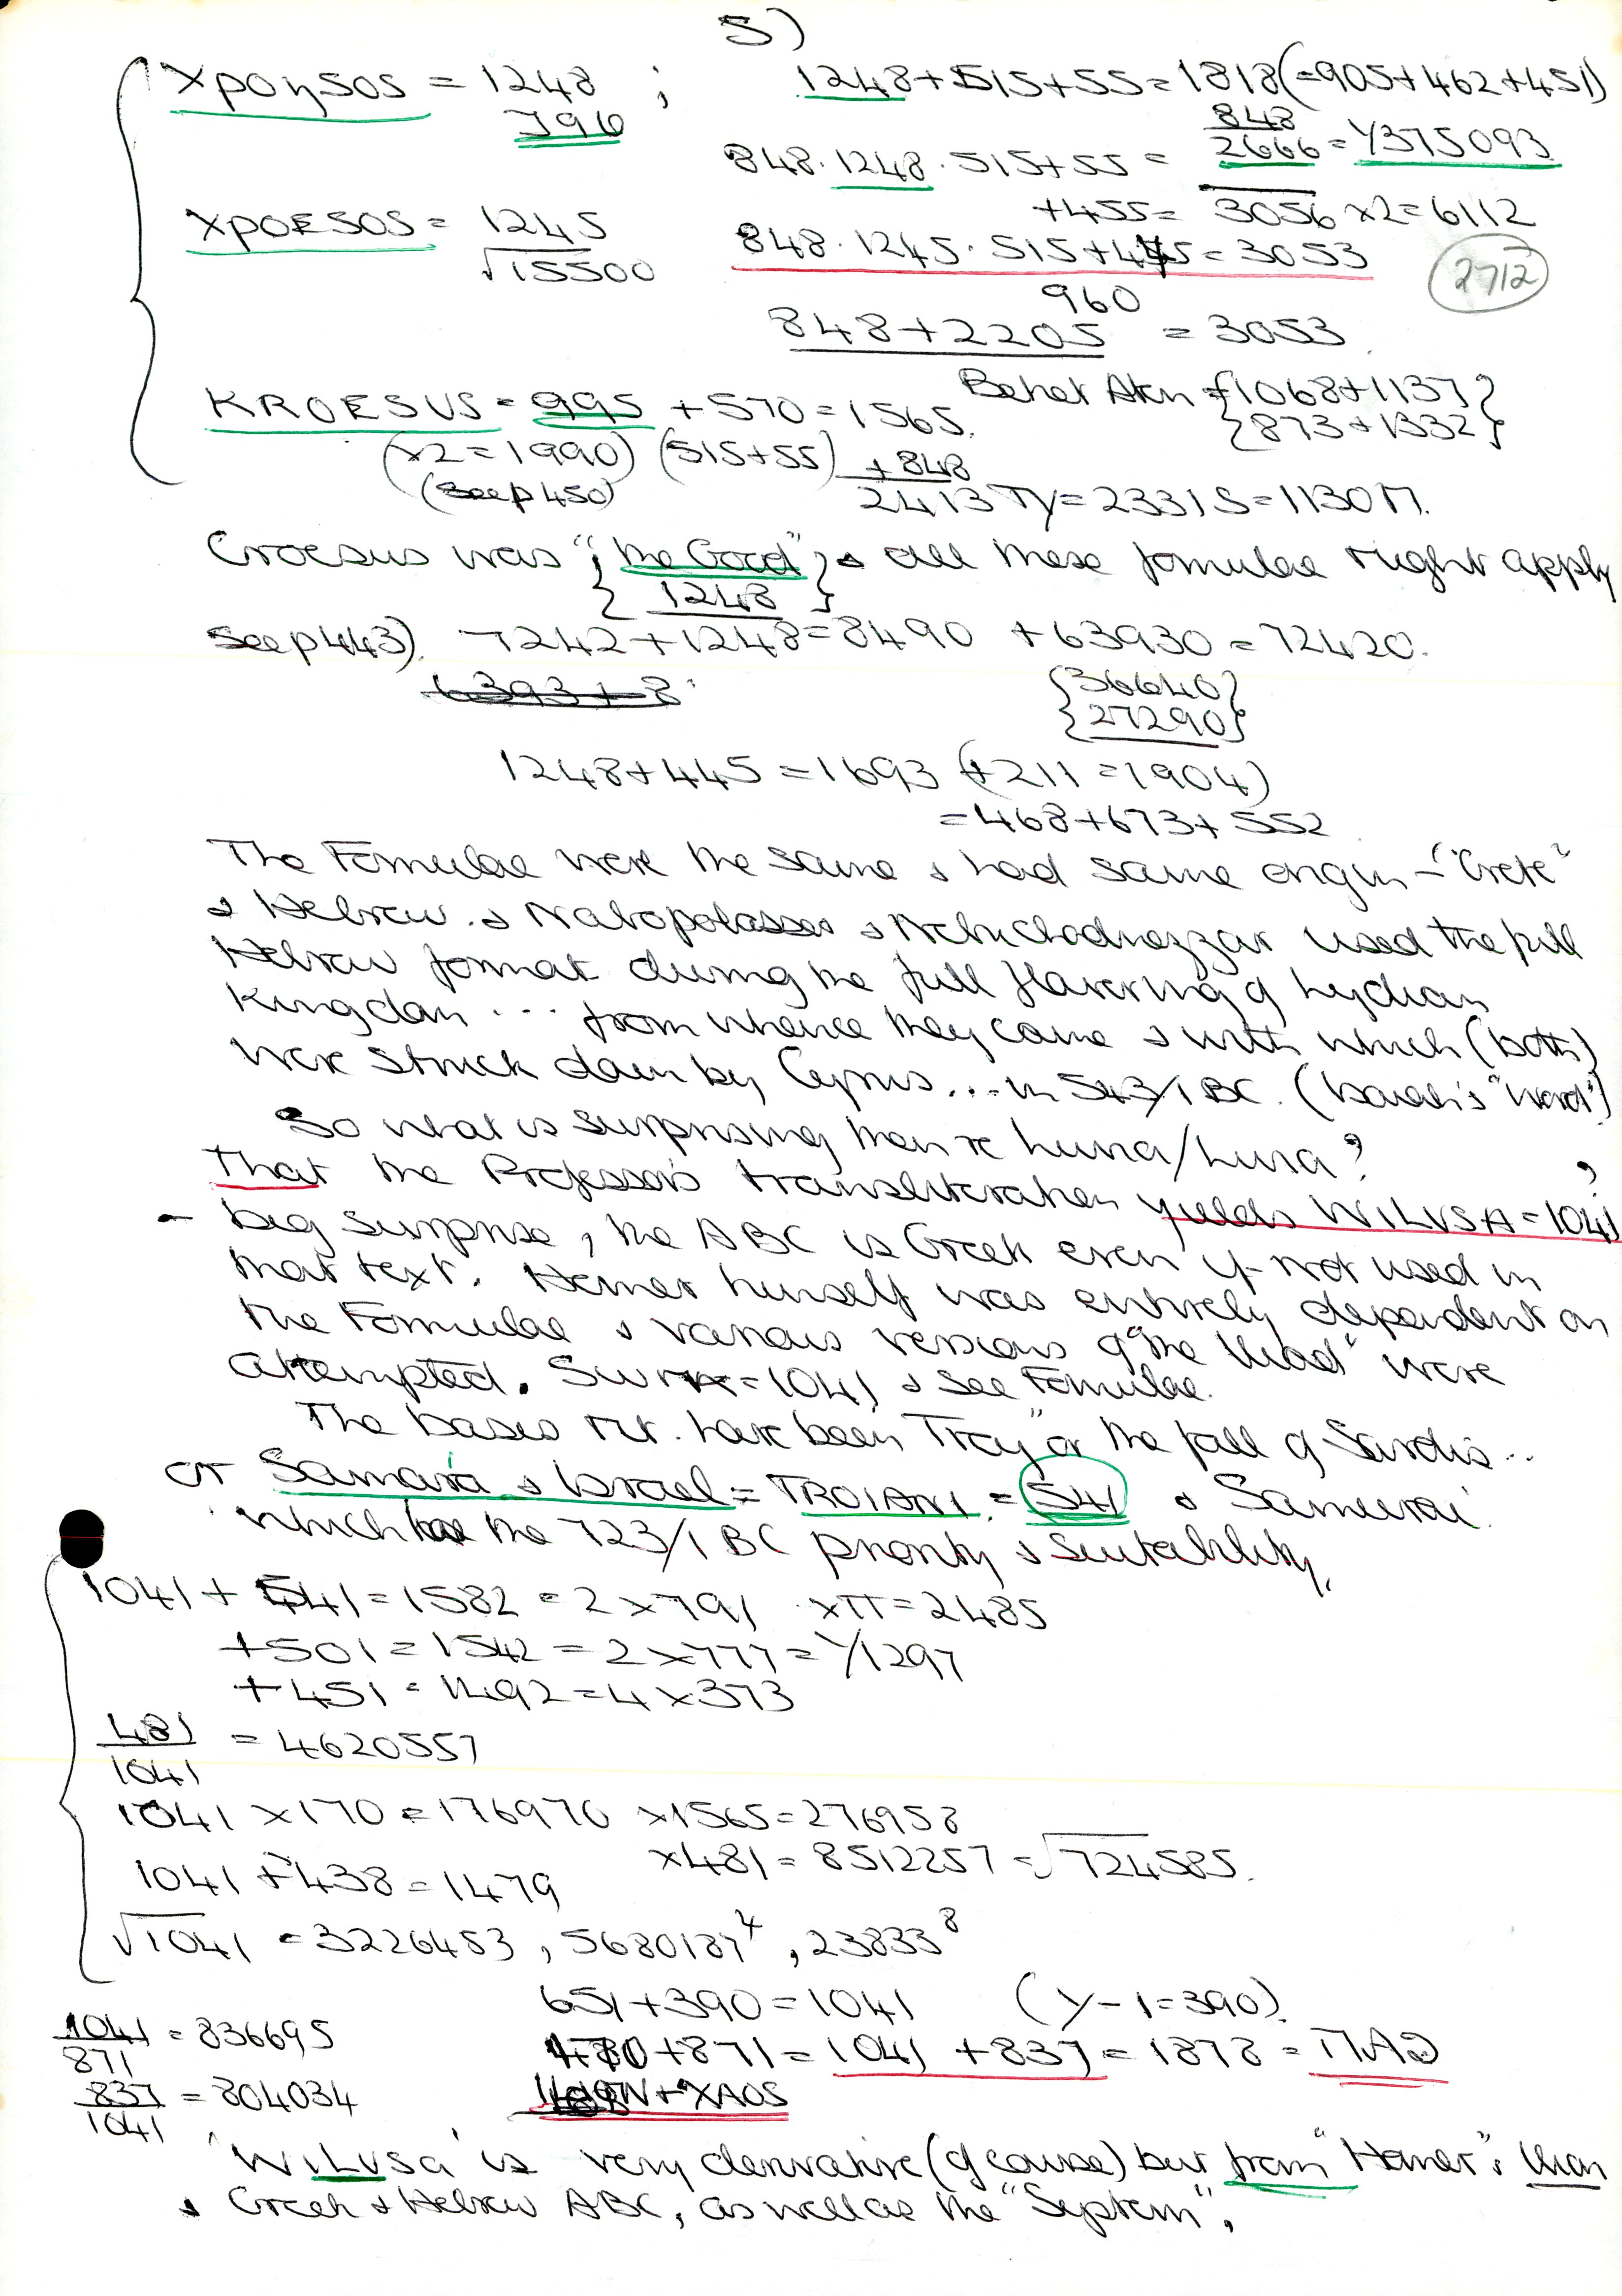 5)
XpOηSOS = 1248 ; 1248+515+55=1818(=905+462+451)
796 848
848·1248·515+55 = 2666 = Y375093
+455= 3056 x2=6112
XpOESOS = 1245
√15500 848·1245·515+445=3053
2712
960
848+2205 = 3053
KROESUS = 995 +570=1565. {1068+1137}
(x2=1990) (515+55) {873+1332}
(See p450) +848
2413 Ty=2331S=1130Π.
Croesus was "{the Good"} & all these formulae might apply
{1248}
See p443). 7242+1248=8490 +63930=72420.
{36640}
{27290}
1248+445=1693 (+211=1904)
=468+673+552
The Formulae were the same & had same origin – "Crete"
& Hebrew. & Nabopolasser & Nebuchadnezzar used the full
Hebrew format during the full flowering of Lydian
Kingdom ... from whence they came & with which (both)
were struck down by Cyrus... in 543/1 BC. (Isaiah's "Word")
So what is surprising then re Luwia/Luvia?
That the Professor's transliteration yields WILUSA=1041,
– big surprise, the ABC is Greek even if not used in
that text. Homer himself was entirely dependent on
the Formulae & various versions of "the Iliad" were
attempted. =1041 & see Formulae.
The basis mt. have been "Troy" or the fall of Sardis...
or Samaria & Israel = TROIANI = 541 & Samurai.
which has the 723/1 BC priority & suitability.
1041 + 541=1582 = 2x791 xπ=2485
+501=1542=2x777=Y1297
+451=1492=4x373
481/1041 = 4620557
1041 x170=176970 x1565=276958
x481=8512257=√724585.
1041 +438=1479
√1041 =3226453, 5680187⁴, 23833⁸
651+390=1041 (Y-1=390).
1041/871 = 836695
+871=1041 +837=1878=
837/1041 = 804034
+XAOS
'WILUSA' is very derivative (of course) but from "Homer"s than
& Greek & Hebrew ABC, as well as the "System".